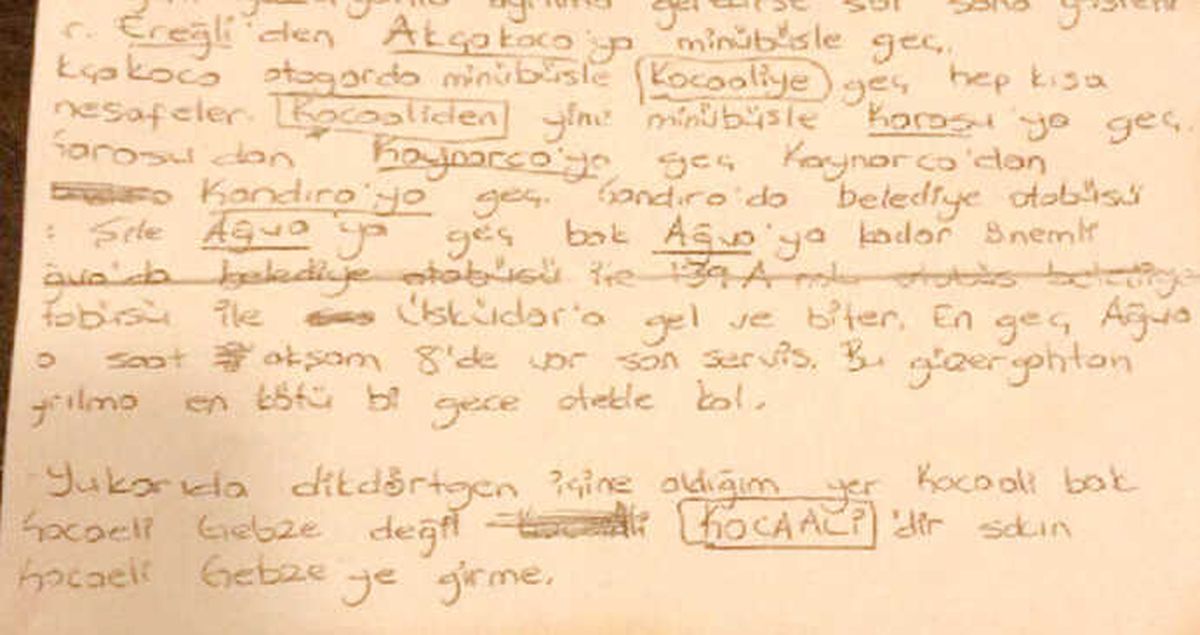 gerekirse sor sana
r. Ereğli'den Akçakoca'ya minübüsle geç.
kçakoca otogarda minübüsle Kocaaliye geç hep kısa
mesafeler. Kocaaliden yine minübüsle Karasu'ya geç.
Karasu'dan Kaynarca'ya geç Kaynarca'dan
Kandıra'ya geç. Kandıra'da belediye otobüsü
: Şile Ağva'ya geç bak Ağva'ya kadar önemli
ğva'da belediye otobüsü ile 139 A otobüs
tobüsü ile Üsküdar'a gel ve biter. En geç Ağva
a saat akşam 8'de var son servis. Bu güzergahtan
yrılma en kötü bi gece otelde kal.
Yukarıda dikdörtgen içine aldığım yer Kocaali bak
Kocaeli Gebze değil KOCAALİ'dir sakın
Kocaeli Gebze ye girme.